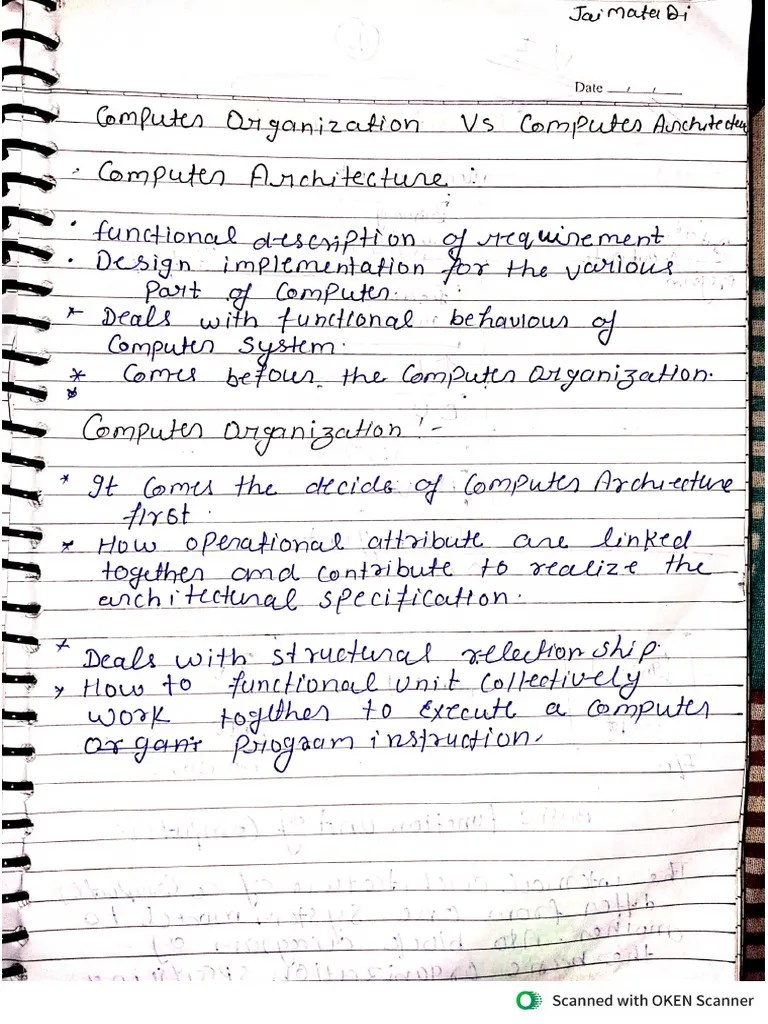 Jai Mata Di
Date
Computer Organization Vs Computer Architecture
Computer Architecture :
functional description of requirement
Design implementation for the various
Part of Computer.
* Deals with functional behaviour of
Computer System.
* Comes before the Computer Organization.
*
Computer Organization :-
* It Comes the decide of Computer Architecture
first.
* How operational attribute are linked
together and contribute to realize the
architectural specification.
* Deals with structural relection ship.
* How to functional unit Collectively
work together to Execute a Computer
program instruction.
Scanned with OKEN Scanner